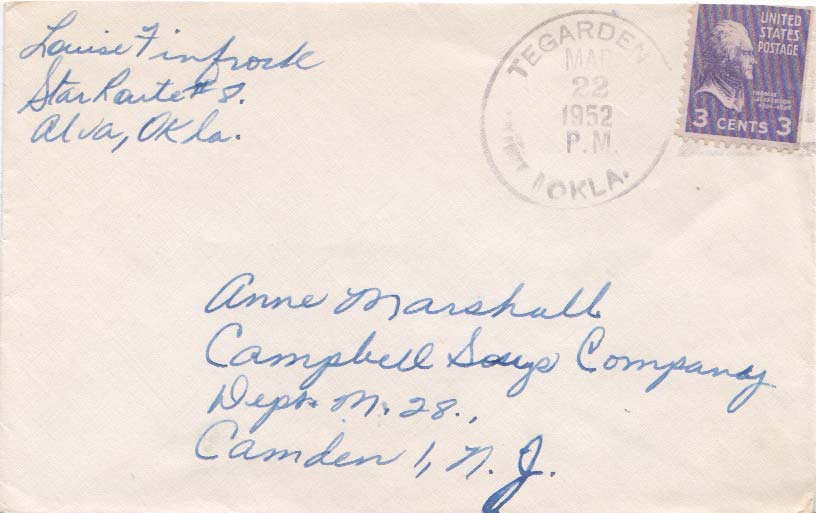 Louise Finfrock
Star Route #8.
Alva, Okla.
TEGARDEN
MAR
22
1952
P.M.
OKLA.
UNITED
STATES
POSTAGE
THOMAS
JEFFERSON
3 CENTS 3
Anne Marshall
Campbell Soup Company
Dept. M. 28.,
Camden 1, N. J.